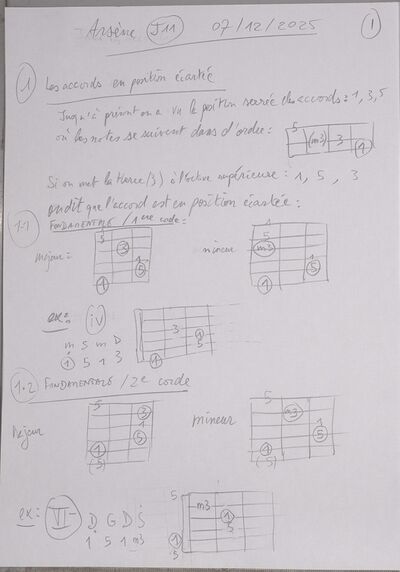 Arsène J11 07/12/2025 1
1 Les accords en position écartée
Jusqu'à présent on a vu la position serrée des accords : 1, 3, 5
où les notes se suivent dans l'ordre :
(m3) 3
1
Si on met la tierce (3) à l'octave supérieure : 1, 5, 3
on dit que l'accord est en position écartée :
1.1 FONDAMENTALE / 1ère corde :
majeur : mineur
5 1
3 5
m3 1
1 5
5 1
1
ex : IV
3
1
5
1
m s m D
1 5 1 3
1.2 FONDAMENTALE / 2e corde
Majeur mineur
5 3
1
1 5
(5)
5 m3
1
1 5
(5)
ex : VI- D G D S
1 5 1 m3
5
m3
1
5
1
5